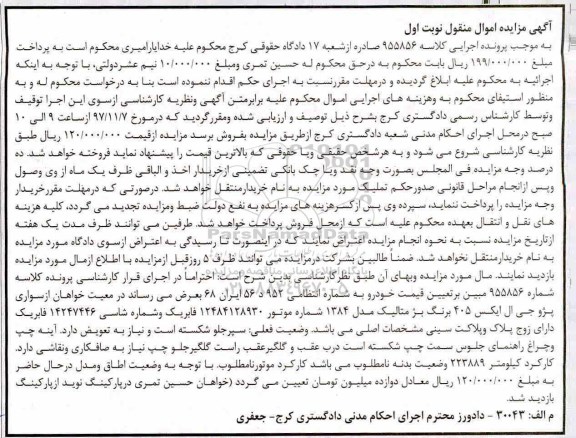 آگهی مزایده اموال منقول نوبت اول
به موجب پرونده اجرایی کلاسه ۹۵۵۸۵۶ صادره ازشعبه ۱۷ دادگاه حقوقی کرج محکوم علیه خدایارامیری محکوم است به پرداخت
مبلغ ۱۹۹/۰۰۰/۰۰۰ ریال بابت محکوم به درحق محکوم له حسین ثمری ومبلغ ۱۰/۰۰۰/۰۰۰ نیم عشردولتی، با توجه به اینکه
اجرائیه به محکوم علیه ابلاغ گردیده و درمهلت مقررنسبت به اجرای حکم اقدام ننموده است بنا به درخواست محکوم له و به
منظور استیفای محکوم به وهزینه های اجرایی اموال محکوم علیه برابرمتن آگهی ونظریه کارشناسی ازسوی این اجرا توقیف
وتوسط کارشناس رسمی دادگستری کرج بشرح ذیل توصیف و ارزیابی شده ومقررگردید که درمورخ ۹۷/۱۱/۷ ازساعت ۹ الی ۱۰
صبح درمحل اجرای احکام مدنی شعبه دادگستری کرج ازطریق مزایده بفروش برسد مزایده ازقیمت ۱۲۰/۰۰۰/۰۰۰ ریال طبق
نظریه کارشناسی شروع می شود و به هرشخص حقیقی ویا حقوقی که بالاترین قیمت را پیشنهاد نماید فروخته خواهد شد. ده
درصد وجه مزایده فی المجلس بصورت وجه نقد ویا چک بانکی تضمینی ازخریدار اخذ و الباقی ظرف یک ماه از وی وصول
وپس ازانجام مراحل قانونی صدورحکم تملیک مورد مزایده به نام خریدارمنتقل خواهد شد. درصورتی که درمهلت مقررخریدار
وجه مزایده را پرداخت ننماید، سپرده وی پس ازکسرهزینه های مزایده به نفع دولت ضبط ومزایده تجدید می گردد، کلیه هزینه
های نقل و انتقال بعهده محکوم علیه است که ازمحل فروش پرداخت خواهد شد. طرفین می توانند ظرف مدت یک هفته
ازتاریخ مزایده نسبت به نحوه انجام مزایده اعتراض نمایند که در اینصورت تا رسیدگی به اعتراض ازسوی دادگاه مورد مزایده
به نام خریدارمنتقل نخواهد شد. ضمنا طالبین بشرکت درمزایده می توانند ظرف ۵ روزقبل ازمزایده با اطلاع ازمال مورد مزایده
بازدید نمایند. مال مورد مزایده وبهای آن طبق نظرکارشناسی بدین شرح است: احتراماً در اجرای قرار کارشناسی پرونده کلاسه
شماره ۹۵۵۸۵۶ مبین برتعیین قیمت خودرو به شماره انتظامی ۹۵۳ د ۵۶ ایران ۶۸ بعرض می رساند در معیت خواهان ازسواری
پژو جی ال ایکس ۴۰۵ برنگ بژ متالیک مدل ۱۳۸۴ شماره موتور ۱۲۴۸۴۱۲۸۹۳۰ فابریک وشماره شاسی ۱۴۲۴۷۴۴۶ فابریک
دارای زوج پلاک وپلاکت سینی مشخصات اصلی می باشد. وضعیت فعلی: سپرجلو شکسته است و نیاز به تعویض دارد. آینه چپ
وچراغ راهنمای جلوس سمت چپ شکسته است درب عقب و گلگیرعقب راست گلگیرجلو چپ نیاز به صافکاری ونقاشی دارد.
کارکرد کیلومتر ۲۲۳۸۸۹ وضعیت بدنه نامطلوب می باشد کارکرد موتورنامطلوب. با توجه به وضعیت اطاق ومدل درحال حاضر
به مبلغ ۱۲۰/۰۰۰/۰۰۰ ریال معادل دوازده میلیون تومان تعیین می گردد (خواهان حسین ثمری درپارکینگ نوید ازپارکینگ
بازدید شد.
م الف: ۳۰۰۴۳ - دادورز محترم اجرای احکام مدنی دادگستری کرج- جعفری